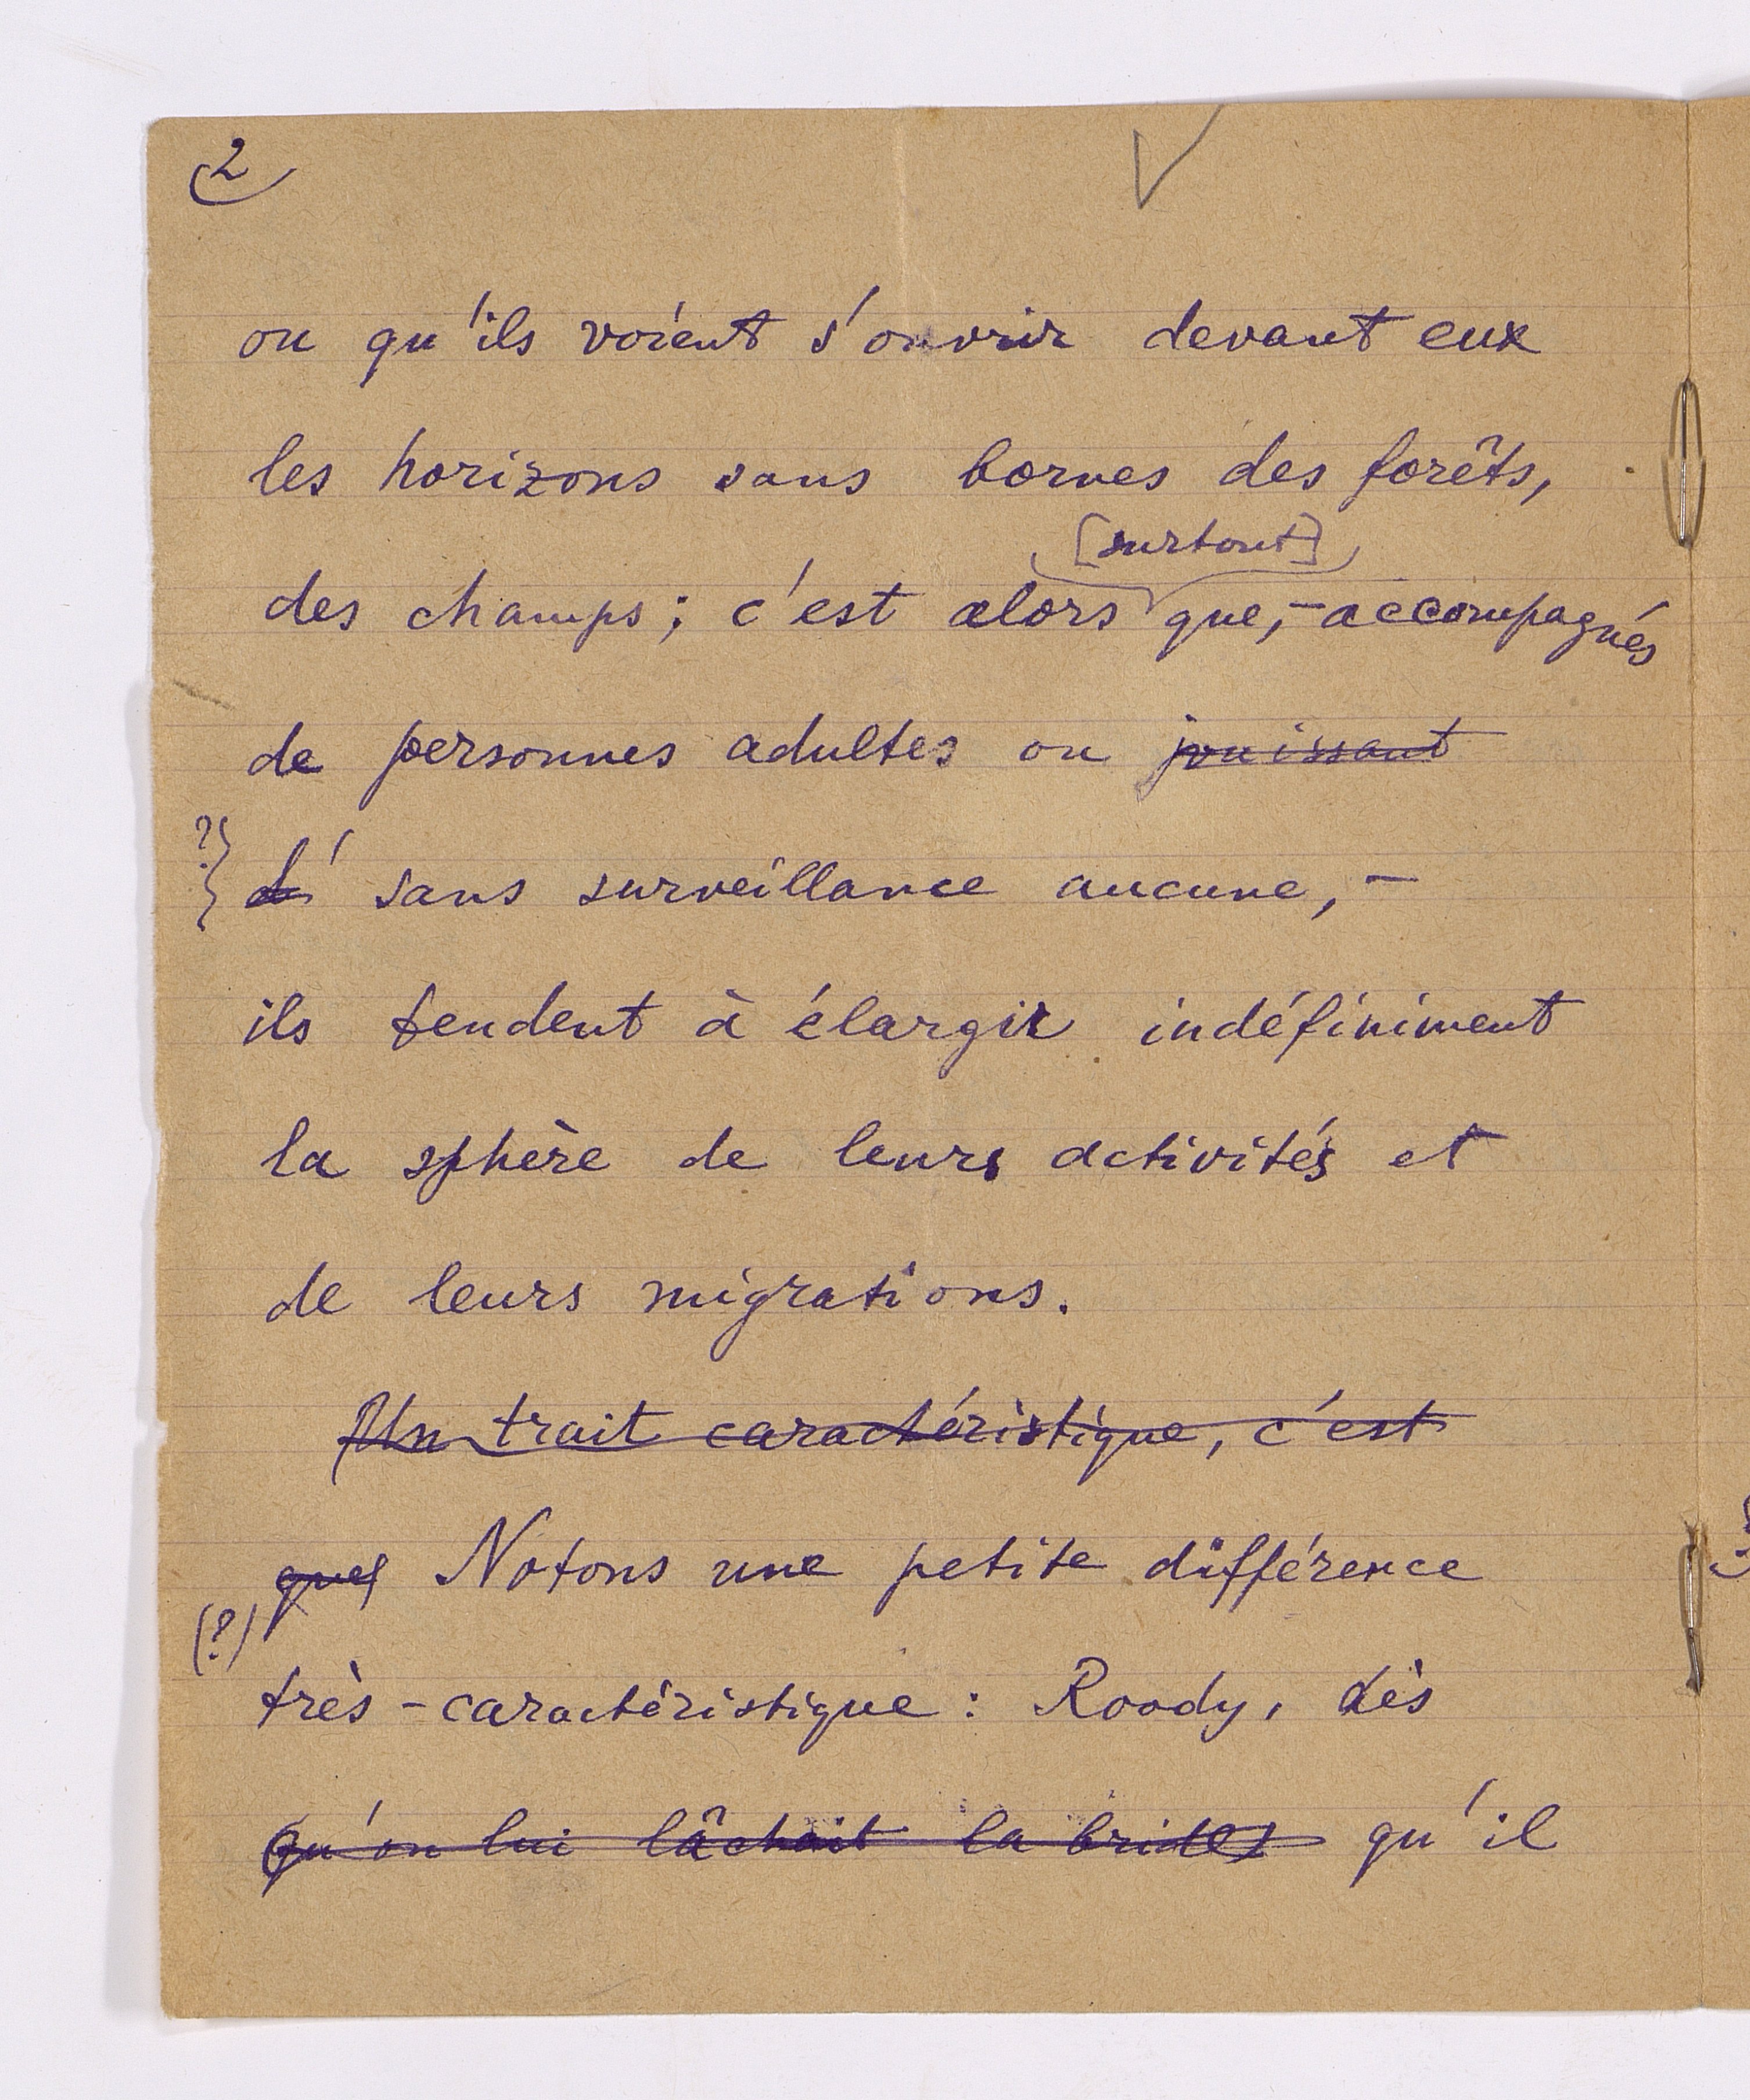 2
ou qu'ils voient s'ouvrir devant eux
les horizons sans bornes des forêts,
[surtout]
des champs; c'est alors que, – accompagnés
de personnes adultes ou jouissant
?} d' sans surveillance aucune, –
ils tendent à élargir indéfiniment
la sphère de leurs activités et
de leurs migrations.
Un trait caractéristique, c'est
que Notons une petite différence
(?)
très-caractéristique: Roody, dès
qu'on lui lâchait la bride, qu'il